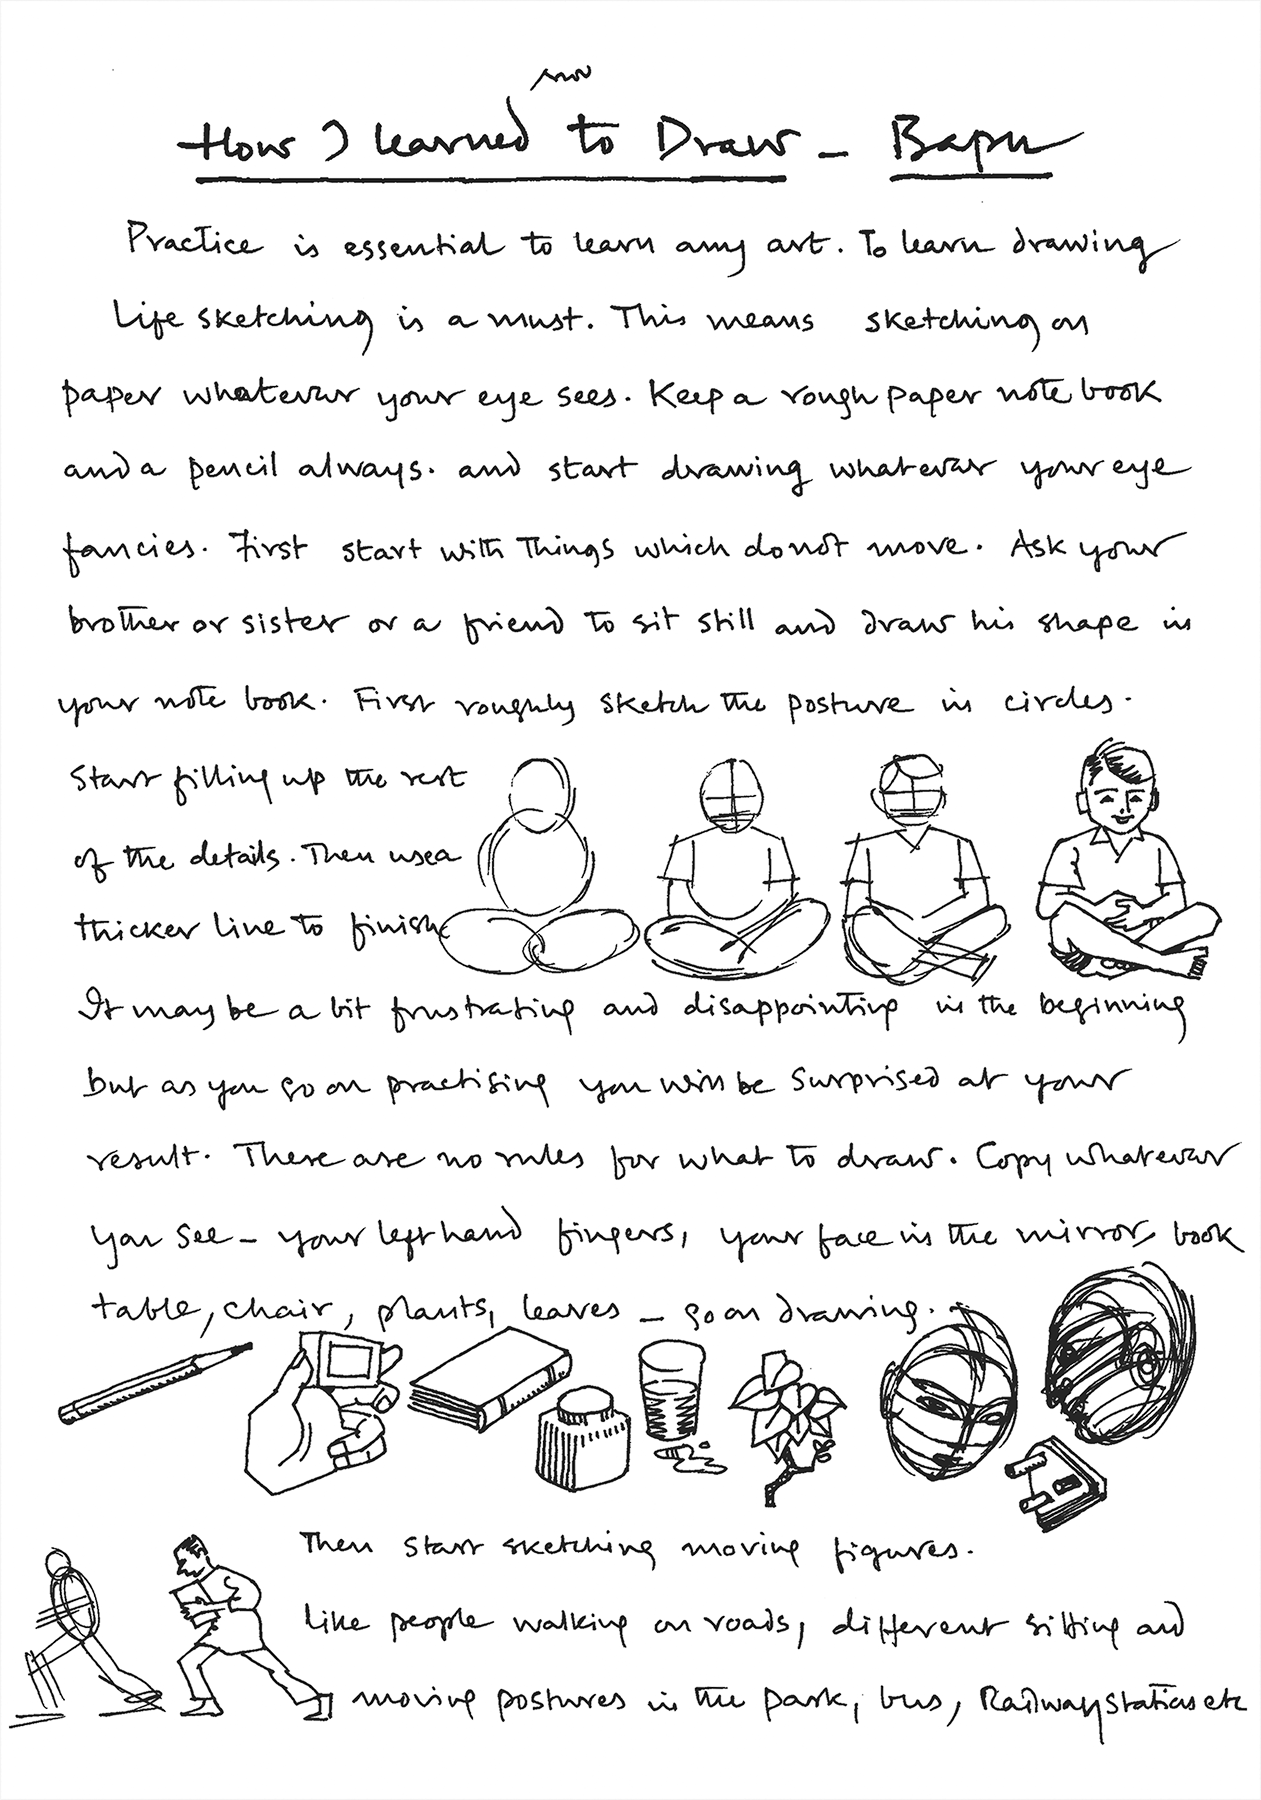 How I learned to Draw - Bapu
Practice is essential to learn any art. To learn drawing
Life sketching is a must. This means sketching on
paper whatever your eye sees. Keep a rough paper note book
and a pencil always. and start drawing whatever your eye
fancies. First start with Things which do not move. Ask your
brother or sister or a friend to sit still and draw his shape in
your note book. First roughly sketch the posture in circles.
Start filling up the rest
of the details. Then use a
thicker line to finish
It may be a bit frustrating and disappointing in the beginning
but as you go on practising you will be surprised at your
result. There are no rules for what to draw. Copy whatever
you see - your left hand fingers, your face in the mirror, book
table, chair, plants, leaves - go on drawing.
Then start sketching moving figures.
like people walking on roads, different sitting and
moving postures in the park, bus, Railway stations etc